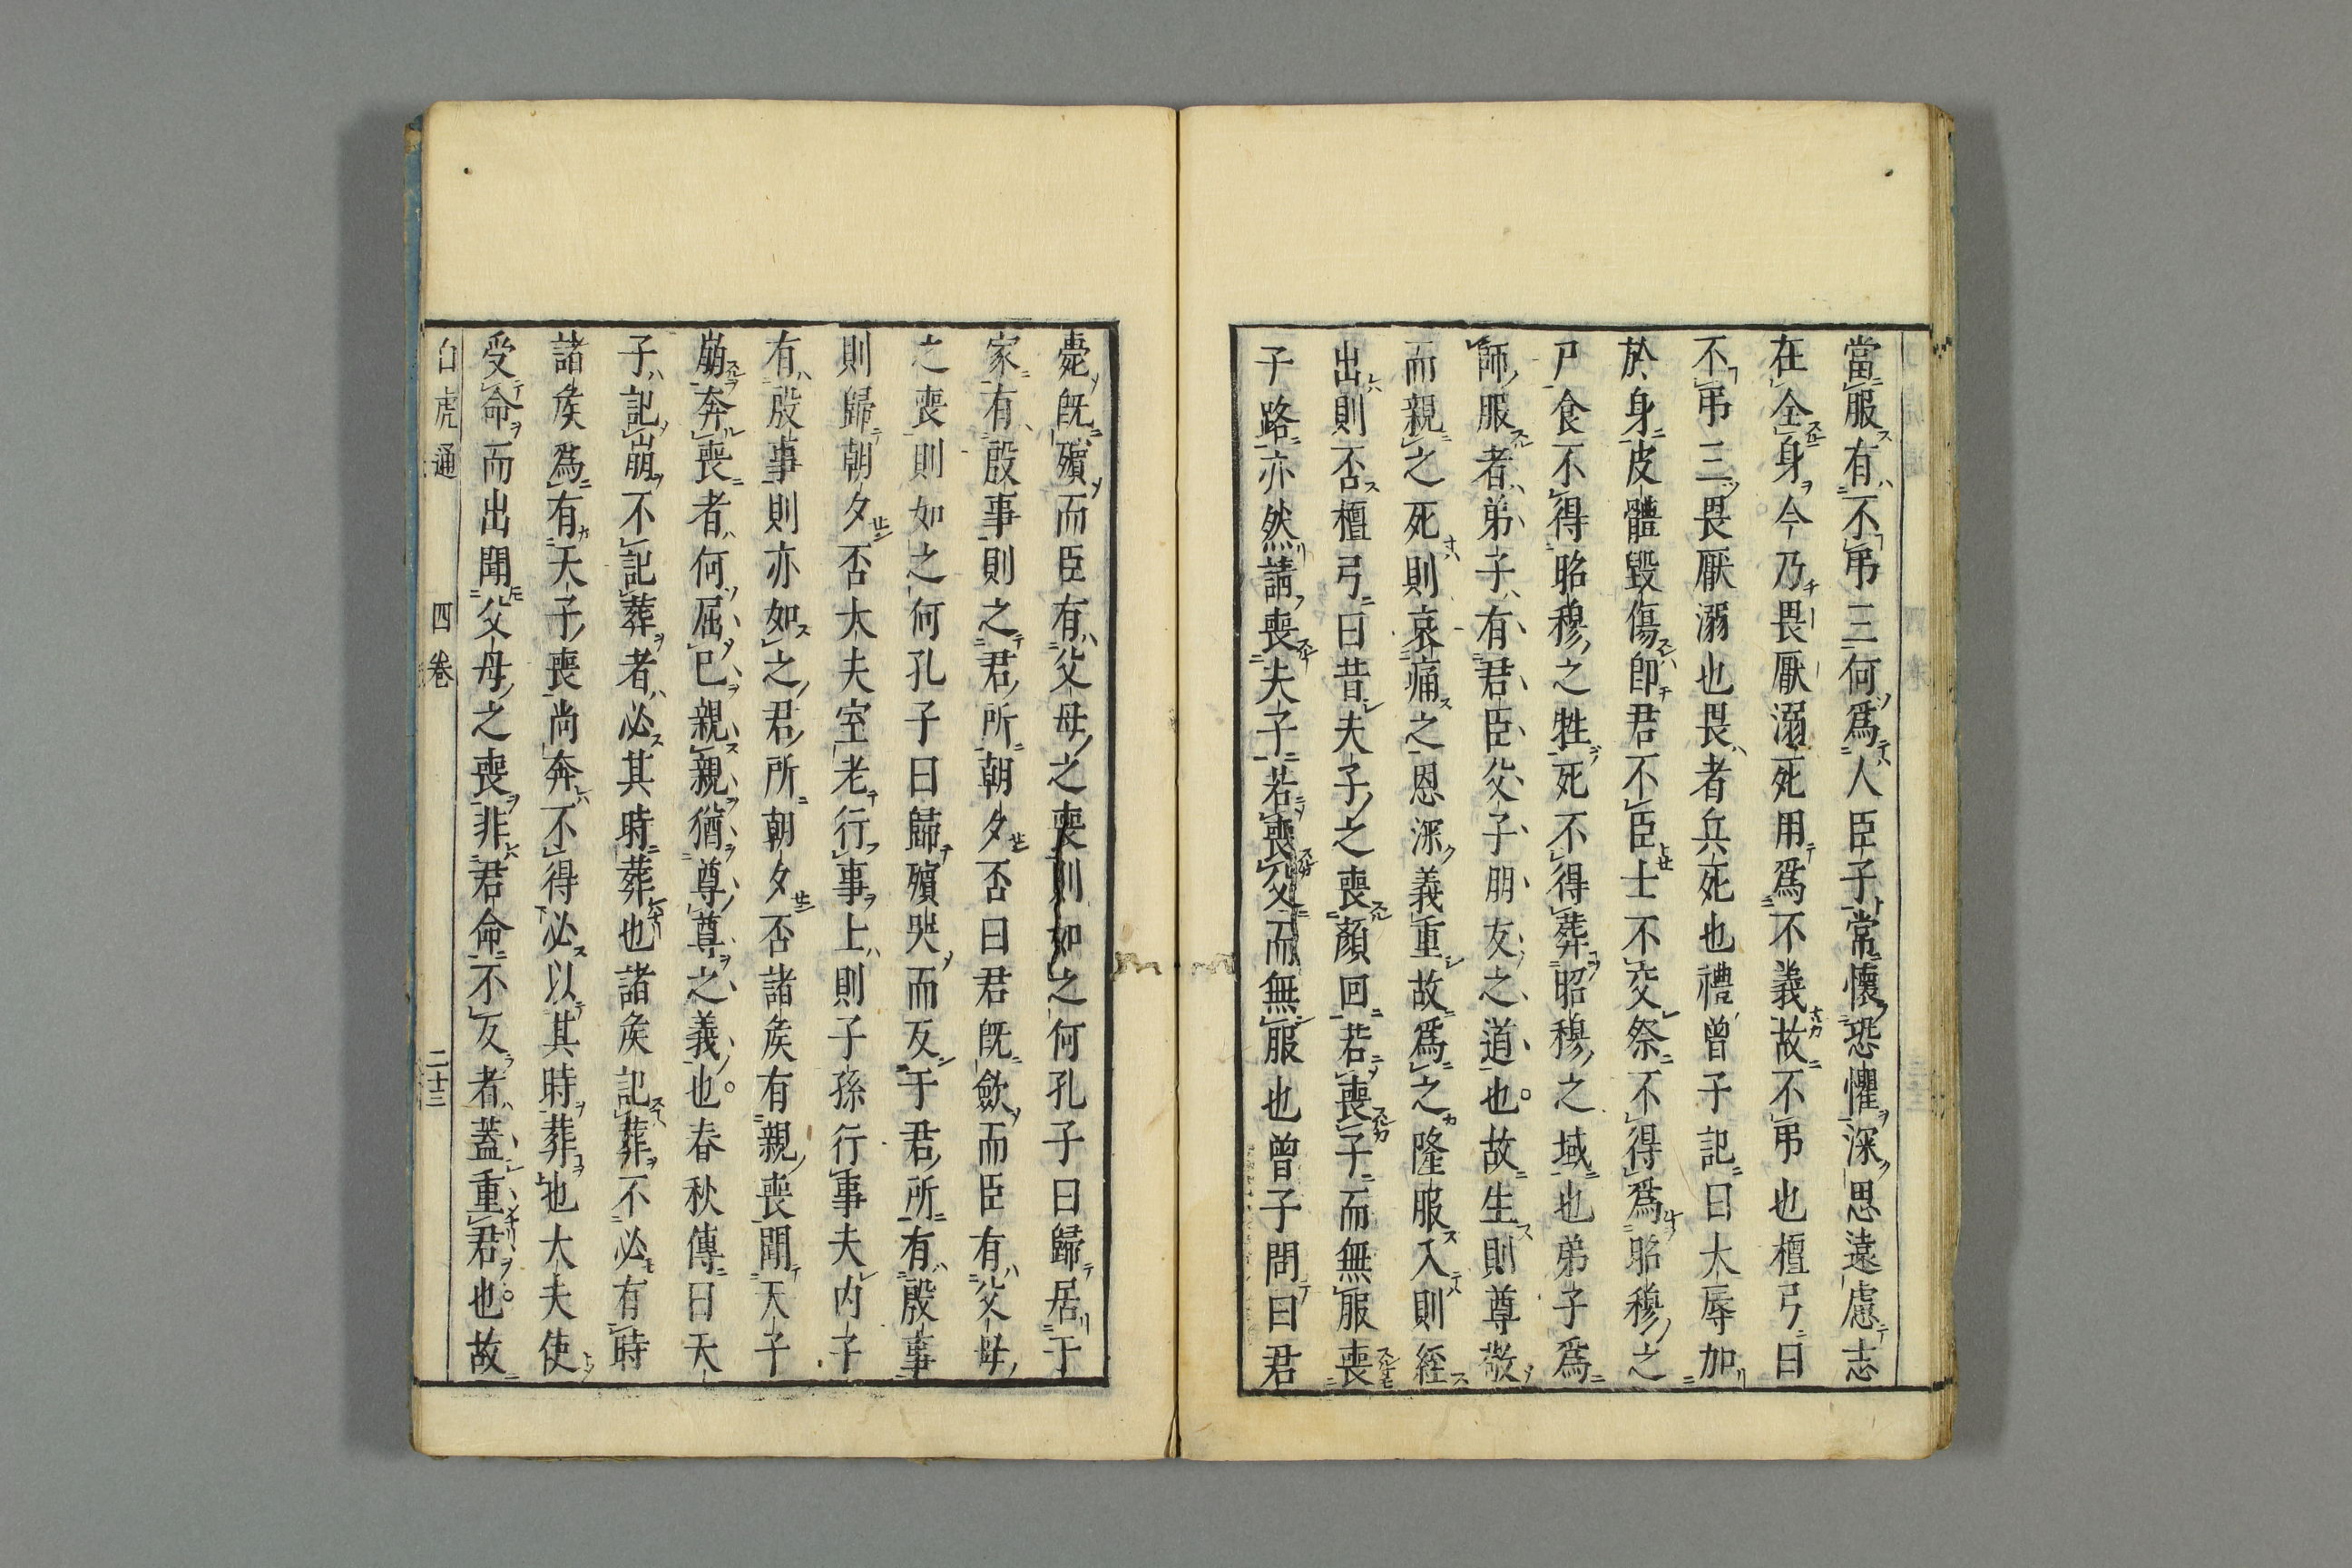 當服有不弔三何爲人臣子常懷恐懼深思遠慮志
在全身今乃畏厭溺死用爲不義故不弔也檀弓曰
不弔三畏厭溺也畏者兵死也禮曾子記曰大辱加
於身皮體毀傷卽君不臣士不交祭不得爲昭穆之
尸食不得昭穆之牲死不得葬昭穆之域也弟子爲
師服者弟子有君臣父子朋友之道也故生則尊敬
而親之死則哀痛之恩深義重故爲之隆服入則絰
出則否檀弓曰昔夫子之喪顏回若喪子而無服喪
子路亦然請喪夫子若喪父而無服也曾子問曰君
薨旣殯而臣有父母之喪則如之何孔子曰歸居于
家有殷事則之君所朝夕否曰君旣歛而臣有父母
之喪則如之何孔子曰歸殯哭而反于君所有殷事
則歸朝夕否大夫室老行事上則子孫行事夫内子
有殷事則亦如之君所朝夕否諸矦有親喪聞天子
崩奔喪者何屈已親親猶尊尊之義也春秋傳曰天
子記崩不記葬者必其時葬也諸矦記葬不必有時
諸矦爲有天子喪尚奔不得必以其時葬也大夫使
受命而出聞父母之喪非君命不反者蓋重君也故
白虎通　四卷　二十三